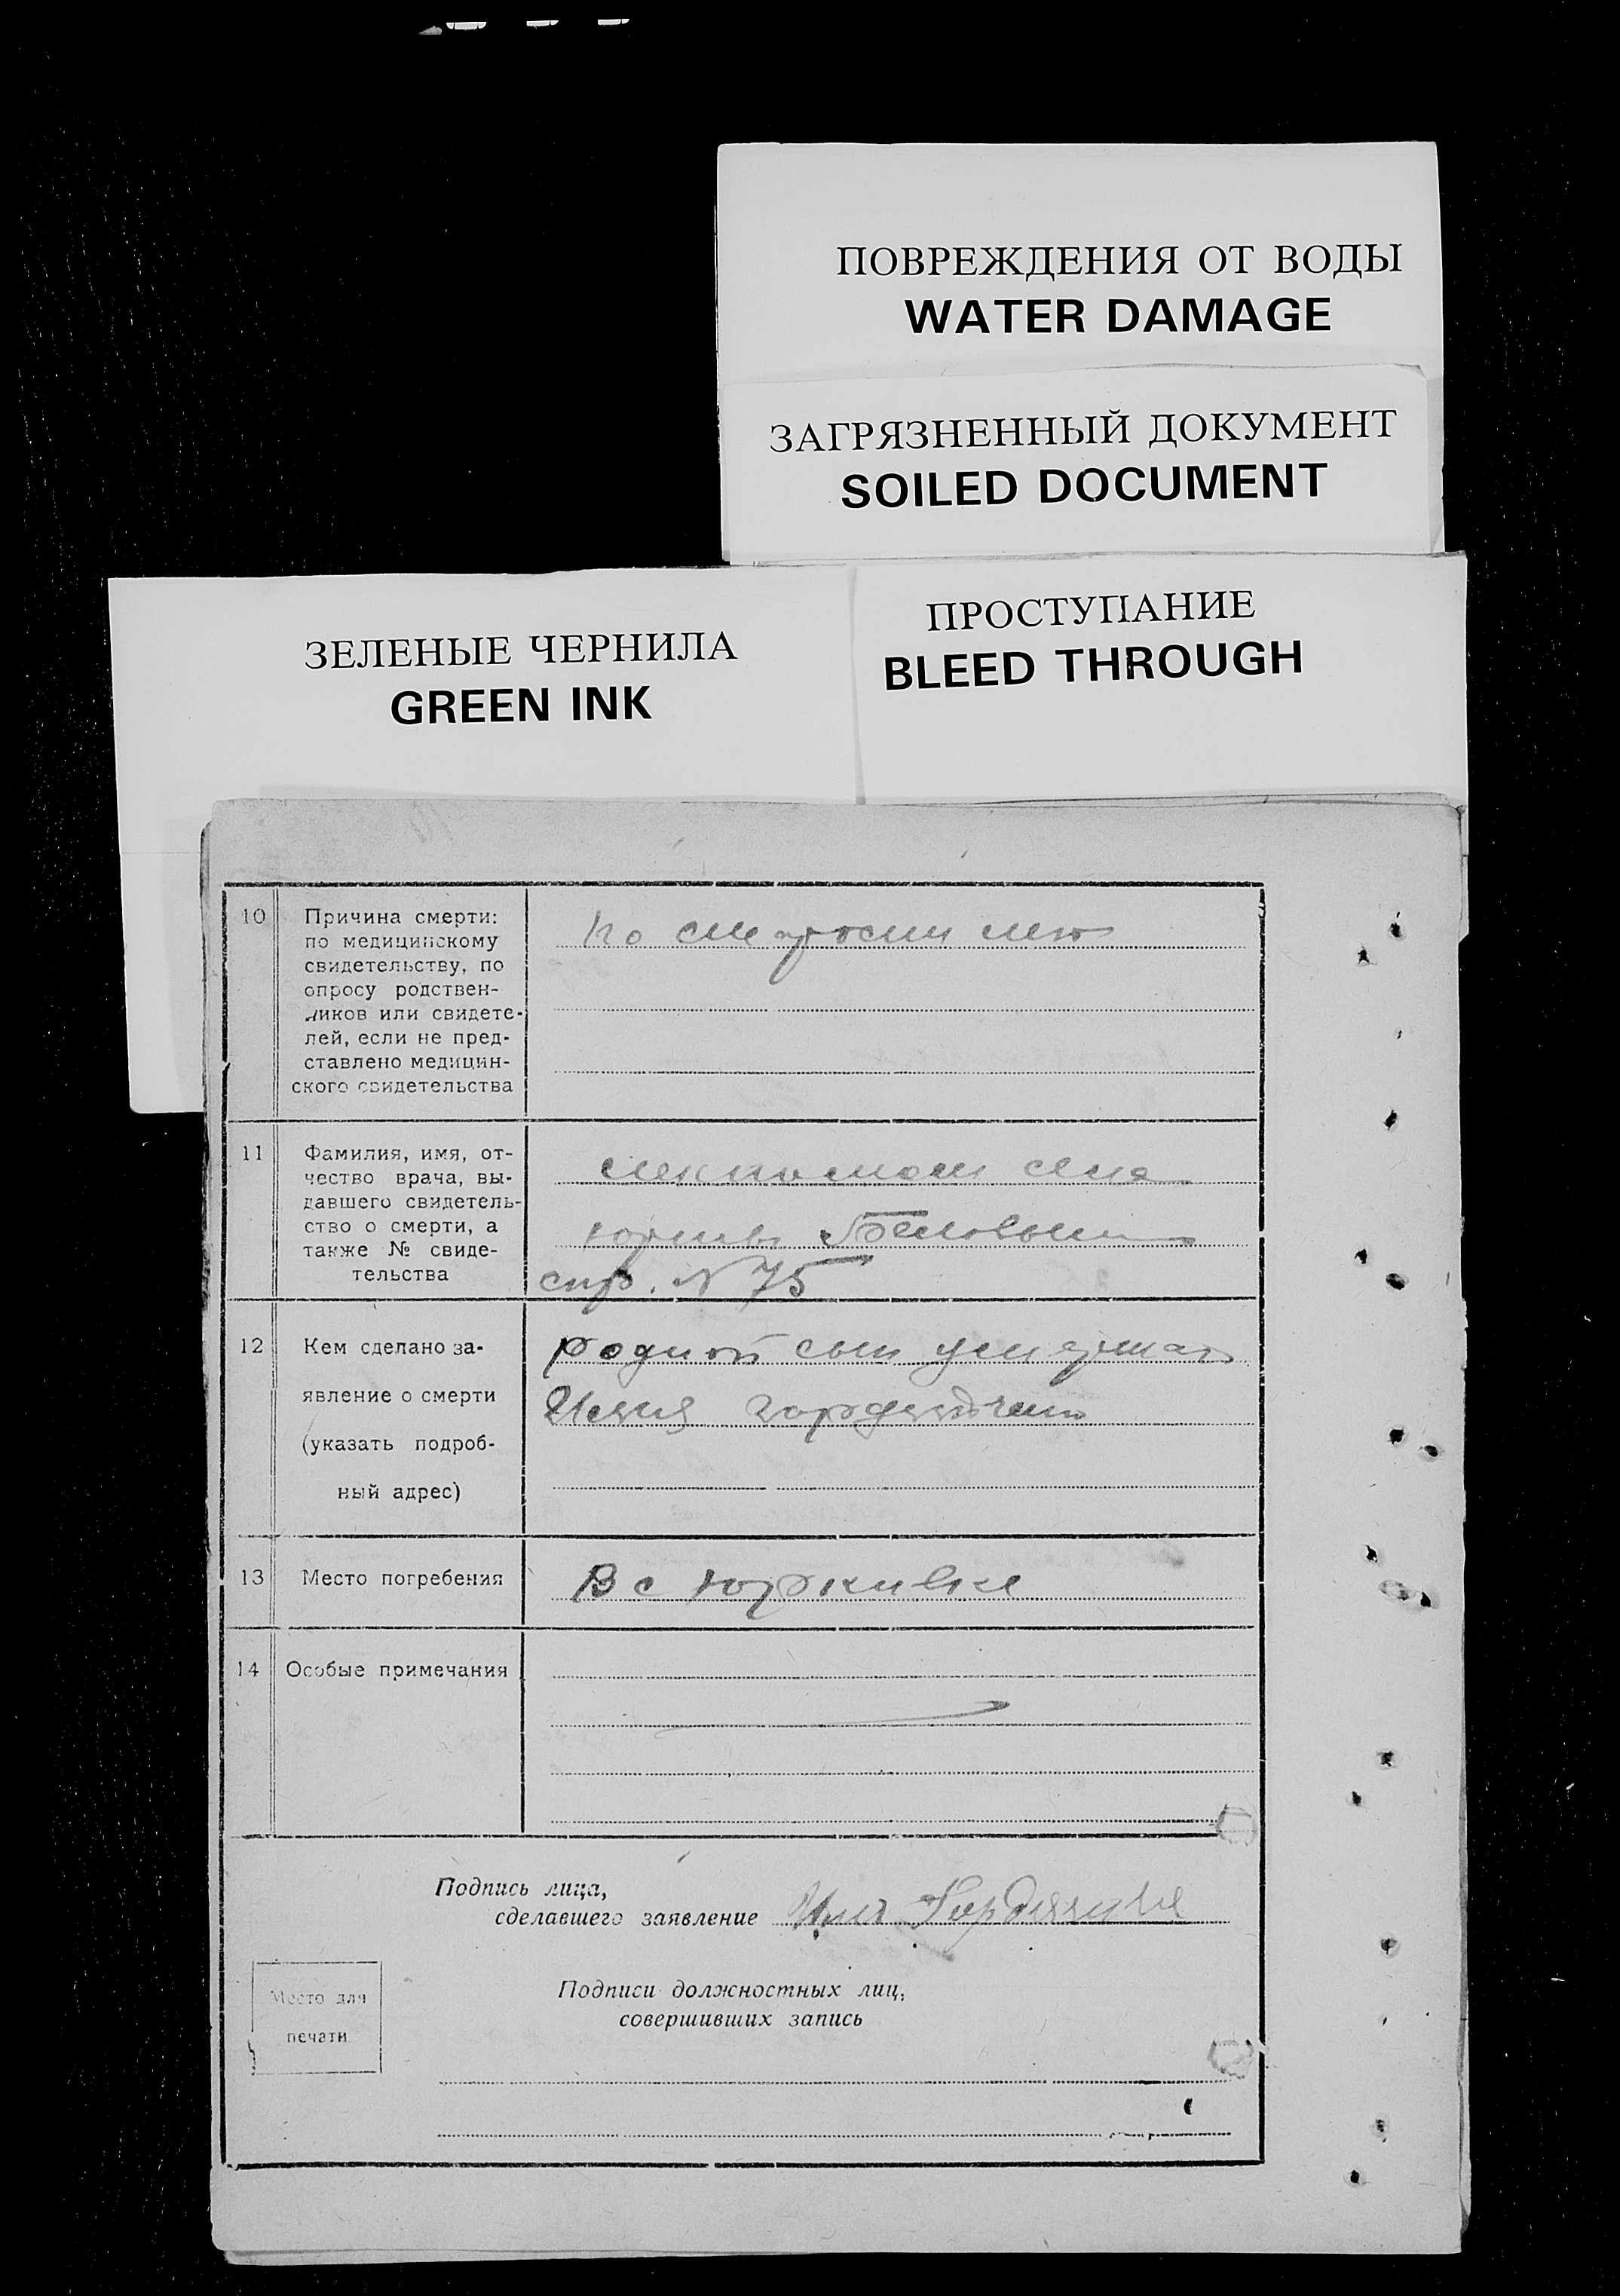 ПОВРЕЖДЕНИЯ ОТ ВОДЫ
WATER DAMAGE
ЗАГРЯЗНЕННЫЙ ДОКУМЕНТ
SOILED DOCUMENT
ЗЕЛЕНЫЕ ЧЕРНИЛА
GREEN INK
ПРОСТУПАНИЕ
BLEED THROUGH
10
Причина смерти:
по медицинскому
свидетельству, по
опросу родствен-
ников или свидете-
лей, если не пред-
ставлено медицин-
ского свидетельства
по старости лет
11
Фамилия, имя, от-
чество врача, вы-
давшего свидетель-
ство о смерти, а
также № свиде-
тельства
села
Беловым
спр. N 75
12
Кем сделано за-
явление о смерти
(указать подроб-
ный адрес)
родной сын
13
Место погребения
В с Юркивке
14
Особые примечания
Подпись лица,
сделавшего заявление
Место для
печати
Подписи должностных лиц,
совершивших запись